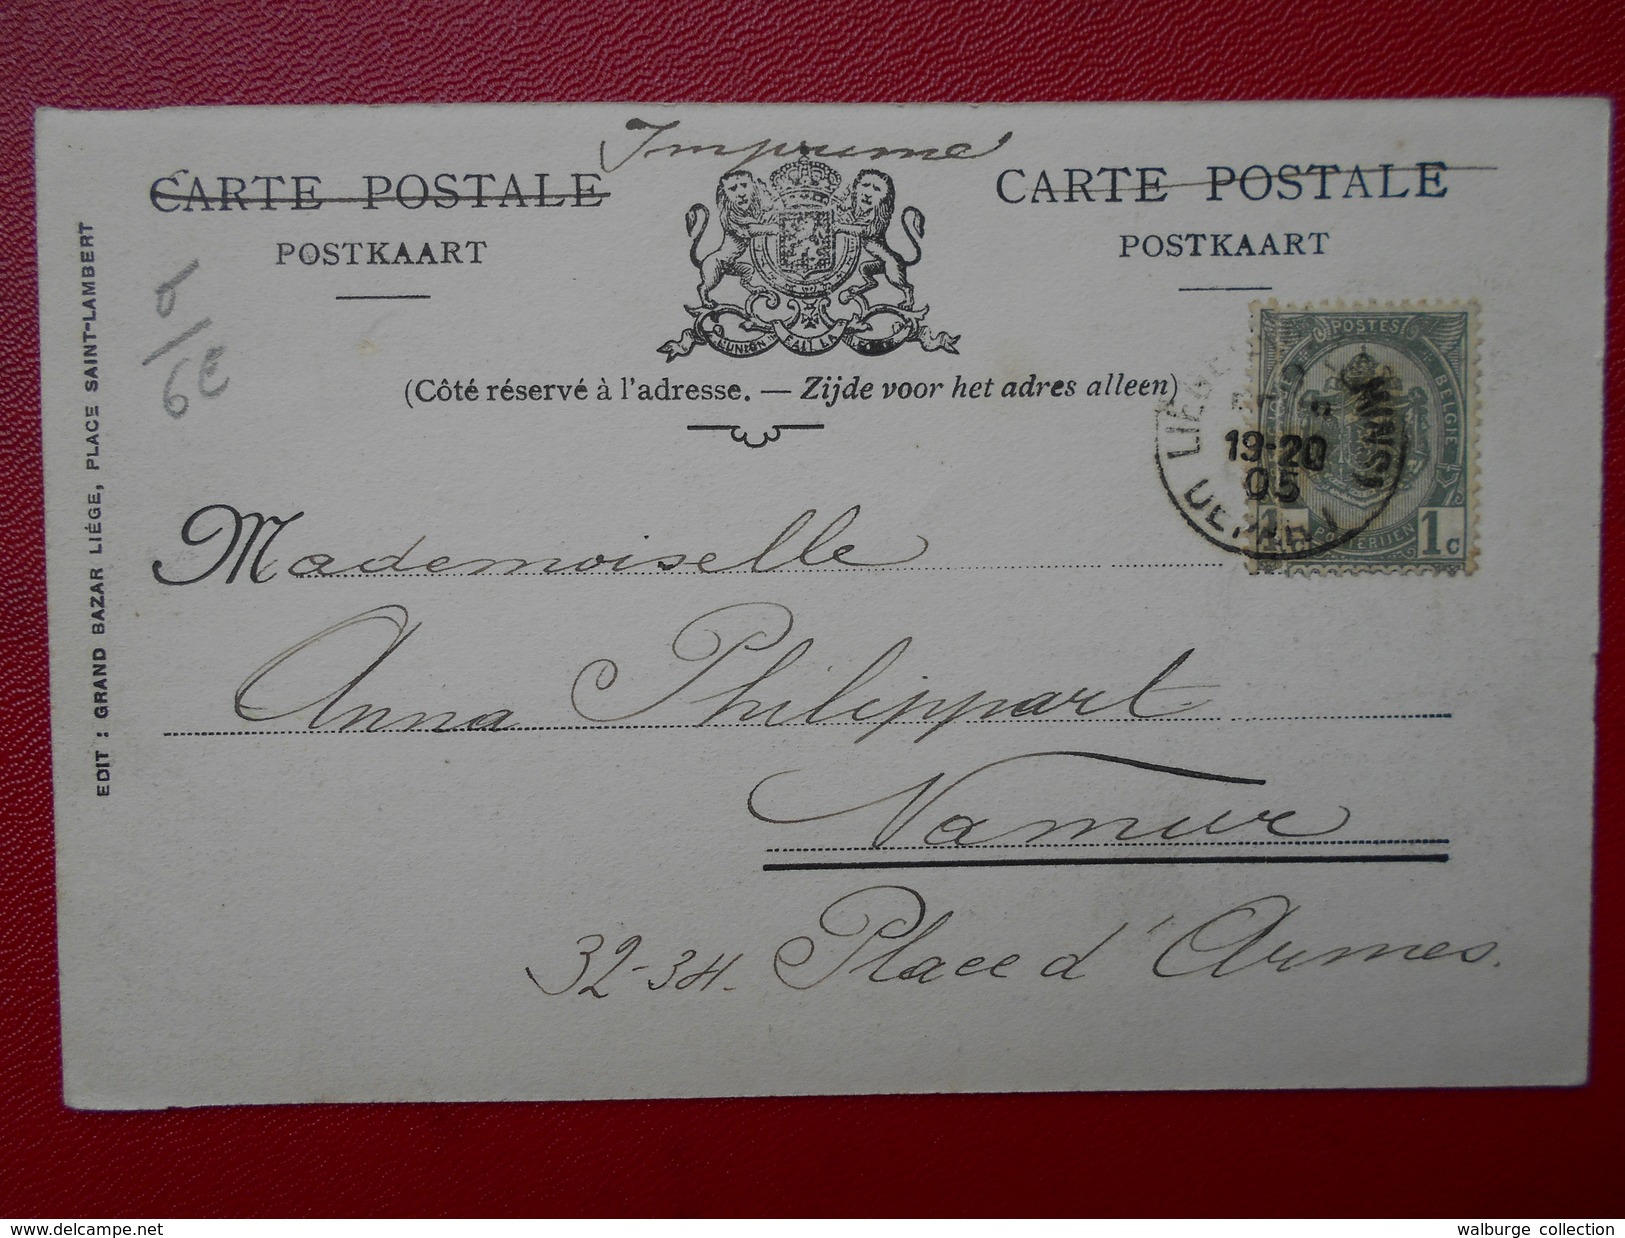 Imprimé
CARTE POSTALE
POSTKAART
CARTE POSTALE
POSTKAART
L'UNION FAIT LA FORCE
(Côté réservé à l'adresse. — Zijde voor het adres alleen)
EDIT : GRAND BAZAR LIÉGE, PLACE SAINT-LAMBERT
6€
POSTES
BELGIE
POSTERIJEN
1 1c
LIÉGE
19-20
05
DEPART
Mademoiselle
Anna Philippart
Namur
32-34. Place d'Armes.
www.delcampe.net
walburge collection